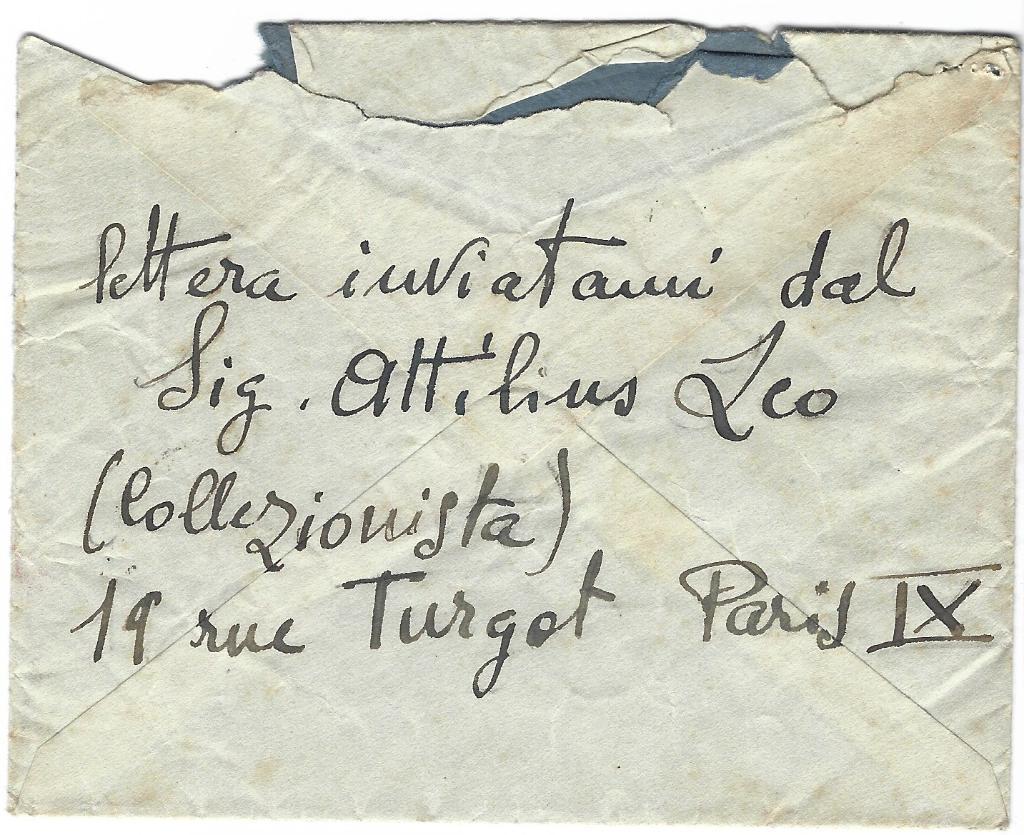 lettera inviatami dal
Sig. Attilius Leo
(Collezionista)
19 rue Turgot Paris IX